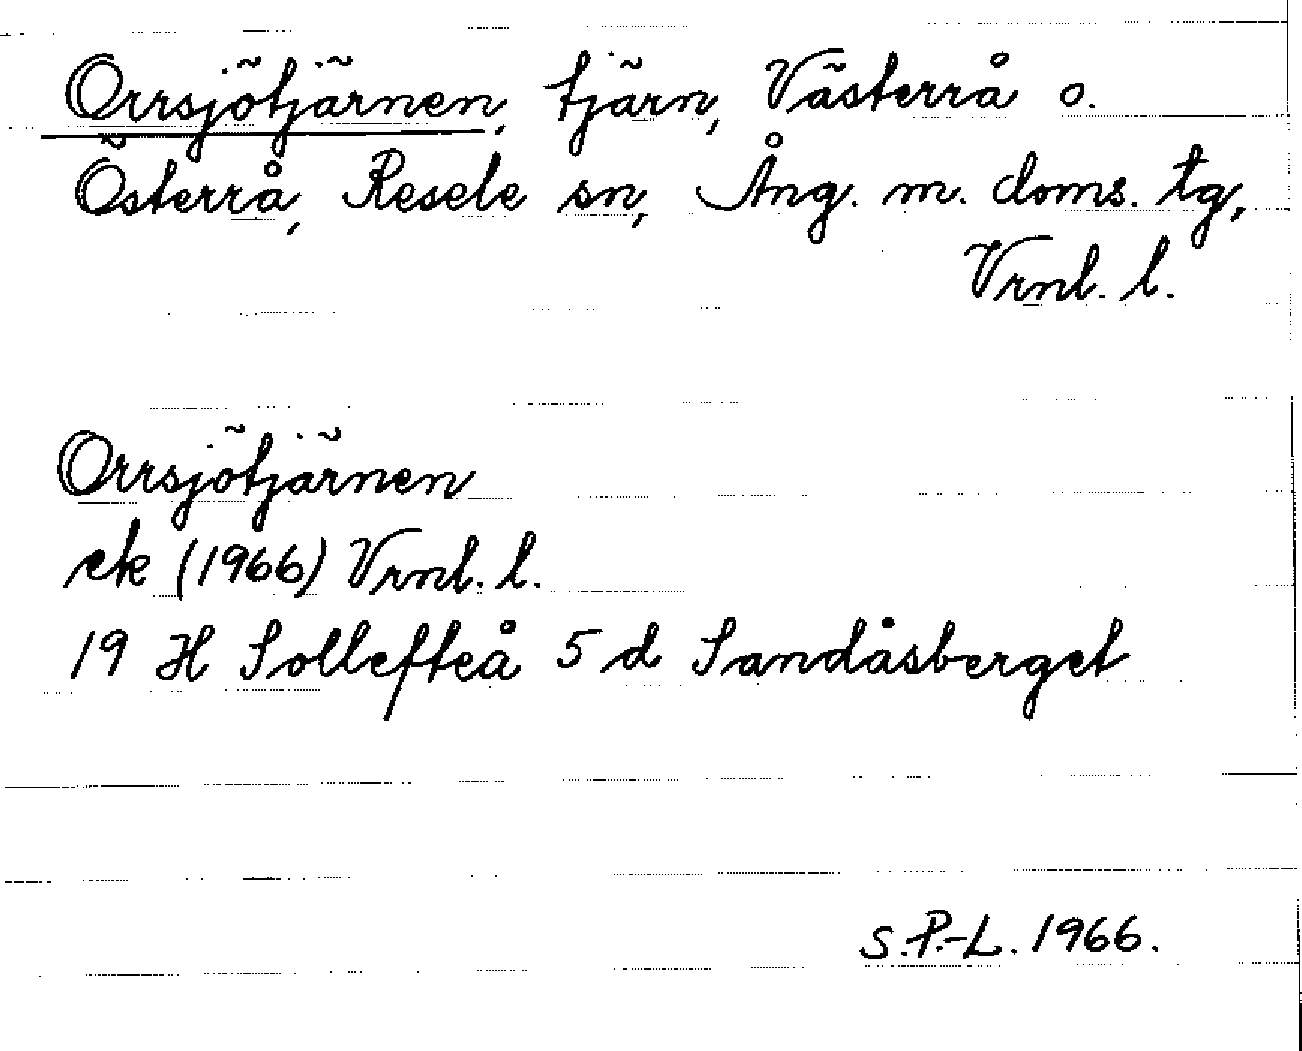 Orrsjötjärnen, tjärn, Västerrå o.
Österrå, Resele sn, Ång. m. doms. tg,
Vrnl. l.
Orrsjötjärnen
ek (1966) Vrnl. l.
19 H Sollefteå 5 d Sandåsberget
S.P.-L. 1966.